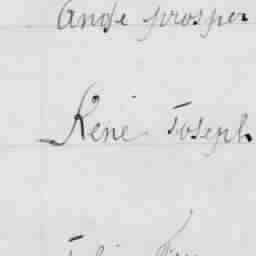 Ange prosper
René Joseph